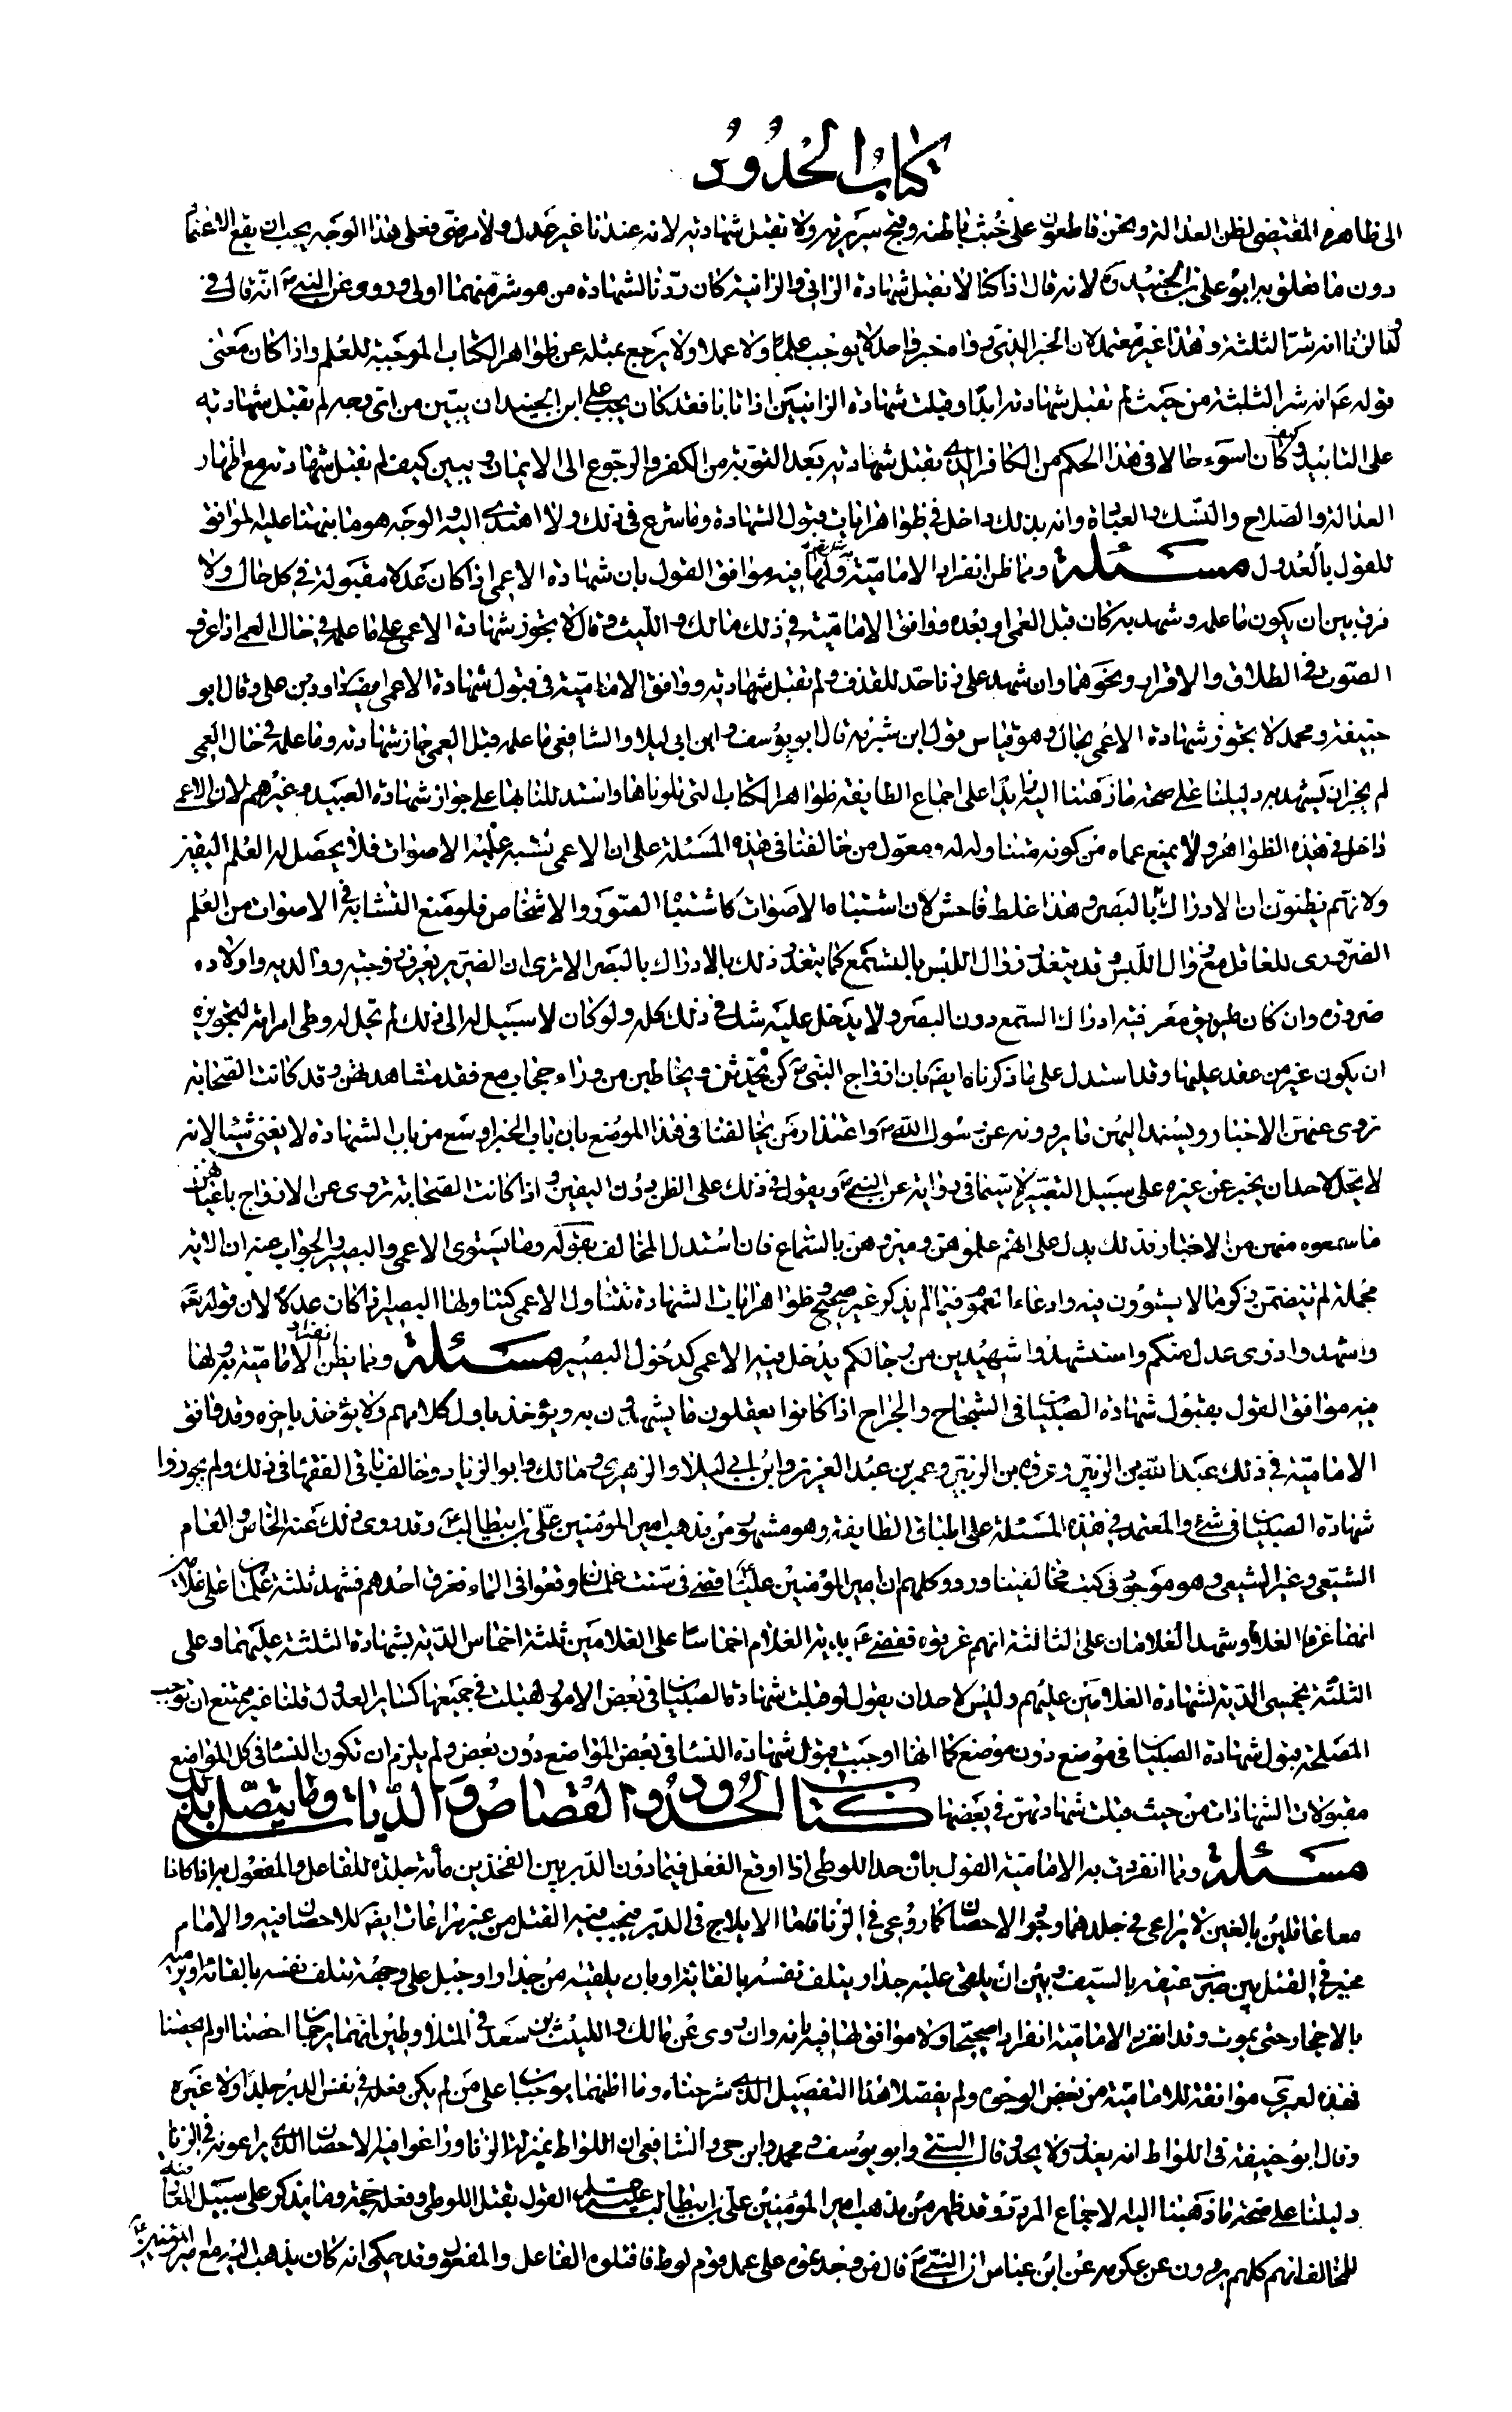 كتاب الحدود
الى ظاهره المقتضى لظن العدالة ونحن قاطعون على خبث باطنه وقبح سريرته ولا تقبل شهادته لانه عندنا غير عدل ولا مرضى فعلى هذا الوجه يجب ان يقع الاعتماد
دون ما تعلق به ابو على بن الجنيد ره لانه قال اذا كنا لا نقبل شهادة الزانى والزانية كان ردنا لشهادة من هو شر منهما اولى وروى عن النبى ص انه قال فى
ولد الزنا انه شر الثلثة وهذا غير معتمد لان الخبر الذى رواه خبر واحد لا يوجب علما ولا عملا ولا يرجع بمثله عن ظواهر الكتاب الموجبة للعلم واذا كان معنى
قوله ع انه شر الثلثة من حيث لم تقبل شهادته ابدا وقبلت شهادة الزانيين اذا تابا فقد كان يجب على ابن الجنيد ان يبين من اى وجه لم تقبل شهادته
على التابيد وكيف كان اسوء حالا فى هذا الحكم من الكافر الذى تقبل شهادته بعد التوبة من الكفر والرجوع الى الايمان ويبين كيف لم تقبل شهادته مع اظهار
العدالة والصلاح والنسك والعبادة وانه بذلك داخل فى ظواهر ايات قبول الشهادة وما شرع فى ذلك ولا اهتدى اليه والوجه هو ما نبهنا عليه الموافق
للقول بالعدول مسئلة ومما ظن انفراد الامامية به ولها فيه موافق القول بان شهادة الاعمى اذا كان عدلا مقبولة فى كل حال ولا
فرق بين ان يكون ما علمه وشهد به كان قبل العمى او بعده ووافق الامامية فى ذلك مالك والليث وقال لا يجوز شهادة الاعمى على ما علمه فى حال العمى اذا عرف
الصوت فى الطلاق والاقرار ونحوهما وان شهد على زنا حد للقذف ولم تقبل شهادته ووافق الامامية فى قبول شهادة الاعمى ايضا داود بن على وقال ابو
حنيفة ومحمد لا يجوز شهادة الاعمى بحال وهو قياس قول ابن شبرمة قال ابو يوسف وابن ابى ليلا والشافعى ما علمه قبل العمى جاز شهادته وما علمه فى حال العمى
لم يجز ان يشهد به دليلنا على صحة ما ذهبنا اليه زايدا على اجماع الطايفة ظواهر الكتاب التى تلوناها واستدللنا بها على جواز شهادة العبيد وغيرهم لان الاعمى
داخل فى هذه الظواهر ولا يمنع عماه من كونه متناولا له ومعول من خالفنا فى هذه المسئلة على ان الاعمى تشتبه عليه الاصوات فلا يحصل له العلم اليقين
ولانهم يظنون ان الادراك بالبصر وهذا غلط فاحش لان اشتباه الاصوات كاشتباه الصور والاشخاص فلو منع التشابه فى الاصوات من العلم
الضرورى للعاقل مع زوال اللبس قد يتعذر زوال اللبس بالسمع كما يتعذر ذلك بالادراك بالبصر الا ترى ان الضرير يعرف زوجته ووالديه واولاده
ضرورة وان كان طريق معرفته ادراك السمع دون البصر ولا يدخل عليه شك فى ذلك كله ولو كان لا سبيل له الى ذلك لم تحل له وطى امراته لتجويزه
ان يكون غير من عقد عليها وقد استدل على ما ذكرناه ايضا بان ازواج النبى ص كن يحدثن ويخاطبن من وراء حجاب مع فقد مشاهدتهن وقد كانت الصحابة
تروى عنهن الاخبار ويسند اليهن ما يروونه عن رسول الله ص واعتذار من يخالفنا فى هذا الموضع بان باب الخبر اوسع من باب الشهادة لا يغنى شيئا لانه
لا يحل لاحد ان يخبر عن غيره على سبيل التعيين لا سيما فى رواية عن النبى ص ويقول فى ذلك على الظن دون اليقين واذا كانت الصحابة تروى عن الازواج باعيانهن
ما سمعوه منهن من الاخبار فذلك يدل على انهم علموهن وميزوهن بالسماع فان استدل المخالف بقوله وما يستوى الاعمى والبصير والجواب عنه ان الاية
مجملة لم تتضمن ذكر ما لا يستوون فيه وادعاء العموم فيما لم يذكر غير صحيح وظواهر ايات الشهادة تتناول الاعمى كتناولها البصير اذا كان عدلا لان قوله تعالى
واشهدوا ذوى عدل منكم واستشهدوا شهيدين من رجالكم يدخل فيه الاعمى كدخول البصير مسئلة ومما يظن انفراد الامامية به ولها
فيه موافق القول بقبول شهادة الصبيان فى الشجاج والجراح اذا كانوا يعقلون ما يشهدون به ويؤخذ باول كلامهم ولا يؤخذ باخره وقد وافق
الامامية فى ذلك عبد الله بن الزبير وعروة بن الزبير وعمر بن عبد العزيز وابن ابى ليلا والزهرى ومالك وابو الزناد وخالف باقى الفقها فى ذلك ولم يجوزوا
شهادة الصبيان فى شئ والمعتمد فى هذه المسئلة على اطباق الطايفة وهو مشهور من مذهب امير المؤمنين على بن ابيطالب ع وقد روى ذلك عنه الخاص والعام
الشيعى وغير الشيعى وهو موجود فى كتب مخالفينا ورووا كلهم ان امير المؤمنين عليه ع قضى فى ستة غلمان وقعوا فى الماء فغرق احدهم فشهد ثلثة غلمان على غلامين
انهما غرقا الغلام وشهد الغلامان على الثلثة انهم غرقوه فقضى ع بدية الغلام اخماسا على الغلامين ثلثة اخماس الدية بشهادة الثلثة عليهما وعلى
الثلثة بخمسى الدية لشهادة الغلامين عليهم وليس لاحد ان يقول لو قبلت شهادة الصبيان فى بعض الامور لقبلت فى جميعها كساير العدول قلنا غير ممتنع ان توجب
المصلحة قبول شهادة الصبيان فى موضع دون موضع كما انها اوجبت قبول شهادة النسا فى بعض المواضع دون بعض ولم يلزم ان تكون النسا فى كل المواضع
مقبولات الشهادات من حيث قبلت شهادتهن فى بعضها كتاب الحدود والقصاص والديات وما يتصل بذلك
مسئلة ومما انفردت به الامامية القول بان حد اللوطى اذا اوقع الفعل فيما دون الدبر بين الفخذين مأة جلدة للفاعل والمفعول به اذا كانا
معا عاقلين بالغين لا يراعى فى جلدهما وجود الاحصان كما روعى فى الزنا فاما الايلاج فى الدبر فيجب فيه القتل من غير مراعات ايضا للاحصان فيه والامام
مخير فى القتل بين ضرب عنقه بالسيف وبين ان يلقى عليه جدار يتلف نفسه بالقائه او بان يلقيه من جدار او جبل على وجه تتلف نفسه بالقائه او يرميه
بالاحجار حتى يموت وقد انفرد الامامية انفرادا صحيحا ولا موافق لها فيه فانه وان روى عن مالك والليث بن سعد فى المتلاوطين انهما يرجمان احصنا او لم يحصنا
فهذه لعمرى موافقة للامامية من بعض الوجوه ولم يفصلا هذا التفصيل الذى شرحناه وما اظنهما يوجبان على من لم يكن فعله فى نفس الدبر جلدا ولا غيره
وقال ابو حنيفة فى اللواط انه يعزر ولا يحد وقال البتى وابو يوسف ومحمد وابن حى والشافعى ان اللواط بمنزلة الزنا وراعوا فيه الاحصان الذى يراعونه فى الزنا
دليلنا على صحة ما ذهبنا اليه الاجماع المردد وقد ظهر من مذهب امير المؤمنين على بن ابيطالب القول بقتل اللوطى وفعله حجة ومما يذكر على سبيل المعارضة
للمخالف انهم كلهم يروون عن عكرمه عن ابن عباس ان النبى ص قال من وجدتموه على عمل قوم لوط فاقتلوه الفاعل والمفعول وقد يحكى انه كان يذهب اليه